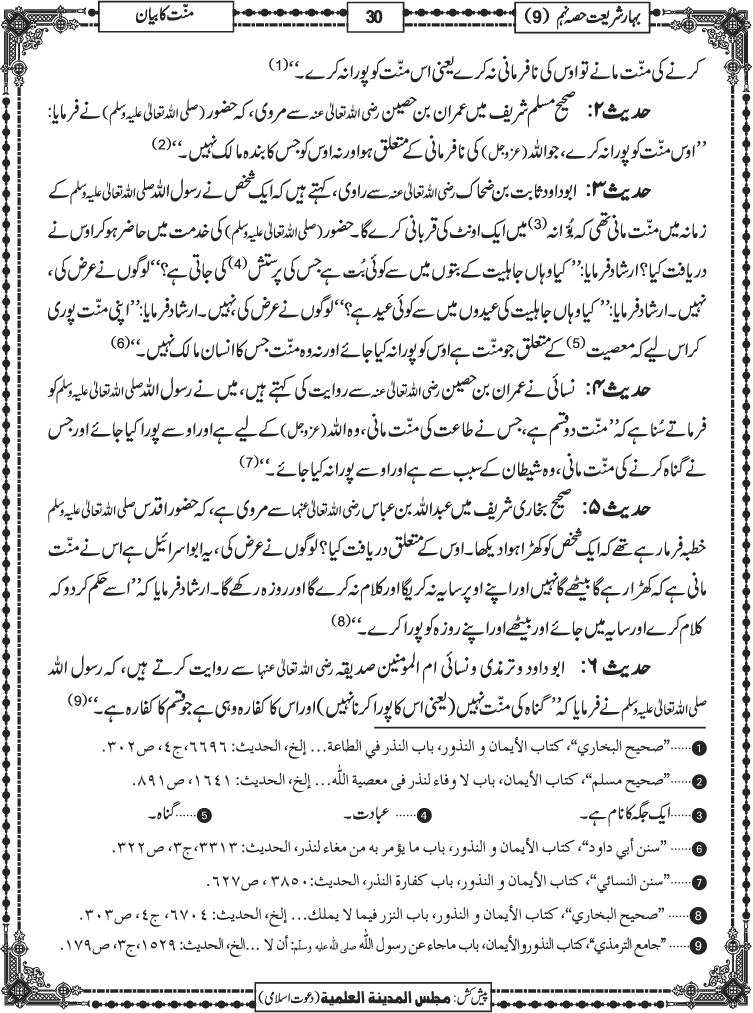 بہارِشریعت حصہ نہم (9)
30
منّت کا بیان
کرنے کی منّت مانے تو اوس کی نافرمانی نہ کرے یعنی اس منّت کو پورا نہ کرے۔‘‘(1)
حدیث ۲: صحیح مسلم شریف میں عمران بن حصین رضی اللہ تعالیٰ عنہ سے مروی، کہ حضور (صلی اللہ تعالیٰ علیہ وسلم) نے فرمایا:
’’اوس منّت کو پورا نہ کرے، جو اللہ (عزوجل) کی نافرمانی کے متعلق ہو اور نہ اوس کو جس کا بندہ مالک نہیں۔‘‘(2)
حدیث ۳: ابوداود ثابت بن ضحاک رضی اللہ تعالیٰ عنہ سے راوی، کہتے ہیں کہ ایک شخص نے رسول اللہ صلی اللہ تعالیٰ علیہ وسلم کے
زمانہ میں منّت مانی تھی کہ بُوَّانہ(3) میں ایک اونٹ کی قربانی کرے گا۔ حضور (صلی اللہ تعالیٰ علیہ وسلم) کی خدمت میں حاضر ہوکر اوس نے
دریافت کیا؟ ارشاد فرمایا: ’’کیا وہاں جاہلیت کے بتوں میں سے کوئی بُت ہے جس کی پرستش(4) کی جاتی ہے؟‘‘ لوگوں نے عرض کی،
نہیں۔ ارشاد فرمایا: ’’کیا وہاں جاہلیت کی عیدوں میں سے کوئی عید ہے؟‘‘ لوگوں نے عرض کی، نہیں۔ ارشاد فرمایا: ’’اپنی منّت پوری
کر اس لیے کہ معصیت(5) کے متعلق جو منّت ہے اوس کو پورا نہ کیا جائے اور نہ وہ منّت جس کا انسان مالک نہیں۔‘‘(6)
حدیث ۴: نسائی نے عمران بن حصین رضی اللہ تعالیٰ عنہ سے روایت کی کہتے ہیں، میں نے رسول اللہ صلی اللہ تعالیٰ علیہ وسلم کو
فرماتے سُنا ہے کہ ’’منّت دو قسم ہے، جس نے طاعت کی منّت مانی، وہ اللہ (عزوجل) کے لیے ہے اور اوسے پورا کیا جائے اور جس
نے گناہ کرنے کی منّت مانی، وہ شیطان کے سبب سے ہے اور اوسے پورا نہ کیا جائے۔‘‘(7)
حدیث ۵: صحیح بخاری شریف میں عبداللہ بن عباس رضی اللہ تعالیٰ عنہما سے مروی ہے، کہ حضور اقدس صلی اللہ تعالیٰ علیہ وسلم
خطبہ فرما رہے تھے کہ ایک شخص کو کھڑا ہوا دیکھا۔ اوس کے متعلق دریافت کیا؟ لوگوں نے عرض کی، یہ ابواسرائیل ہے اس نے منّت
مانی ہے کہ کھڑا رہے گا بیٹھے گا نہیں اور اپنے اوپر سایہ نہ کریگا اور کلام نہ کرے گا اور روزہ رکھے گا۔ ارشاد فرمایا کہ ’’اسے حکم کردو کہ
کلام کرے اور سایہ میں جائے اور بیٹھے اور اپنے روزہ کو پورا کرے۔‘‘(8)
حدیث ۶: ابو داود و ترمذی و نسائی ام المومنین صدیقہ رضی اللہ تعالیٰ عنہا سے روایت کرتے ہیں، کہ رسول اللہ
صلی اللہ تعالیٰ علیہ وسلم نے فرمایا کہ ’’گناہ کی منّت نہیں (یعنی اس کا پورا کرنا نہیں) اور اس کا کفارہ وہی ہے جو قسم کا کفارہ ہے۔‘‘(9)
1 ......”صحیح البخاري“، کتاب الأیمان و النذور، باب النذر في الطاعة... إلخ، الحدیث: ٦٦٩٦،ج٤، ص٣٠٢.
2 ......”صحیح مسلم“، کتاب الأیمان، باب لا وفاء لنذر فی معصیة اللّٰہ... إلخ، الحدیث: ١٦٤١، ص٨٩١.
3 ......ایک جگہ کا نام ہے۔ 4 ...... عبادت۔ 5 ......گناہ۔
6 ......”سنن أبي داود“، کتاب الأیمان و النذور، باب ما یؤمر به من مغاء لنذر، الحدیث: ٣٣١٣،ج٣، ص٣٢٢.
7 ......”سنن النسائي“، کتاب الأیمان و النذور، باب کفارة النذر، الحدیث: ٣٨٥٠ ، ص٦٢٧.
8 ...... ”صحیح البخاري“، کتاب الأیمان و النذور، باب النزر فیما لا یملك... إلخ، الحدیث: ٦٧٠٤، ج٤، ص٣٠٣.
9 ......”جامع الترمذي“،کتاب النذور والأیمان، باب ماجاء عن رسول اللّٰہ صلی اللہ علیہ وسلم: أن لا ...الخ، الحدیث: ١٥٢٩،ج٣، ص١٧٩.
پیش کش: مجلس المدینة العلمیة (دعوت اسلامی)